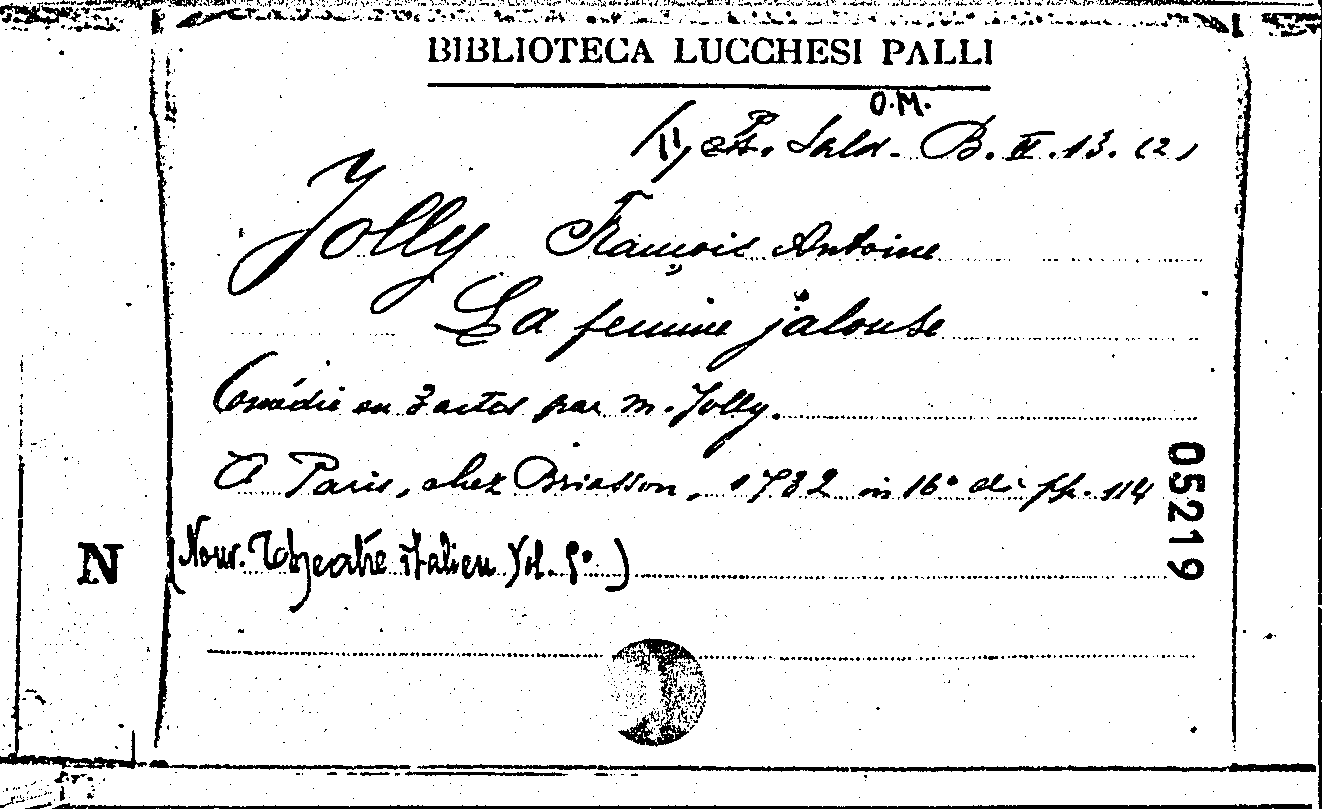 BIBLIOTECA LUCCHESI PALLI
O.M.
Sala. B. II. 13. (2)
Jolly François Antoine
La femme jalouse
Comédie en 3 actes par M. Jolly.
A Paris, chez Briasson, 1732 in 16° di pp. 114
(Nouv. Théatre italien Vol. 5°)
N
05219